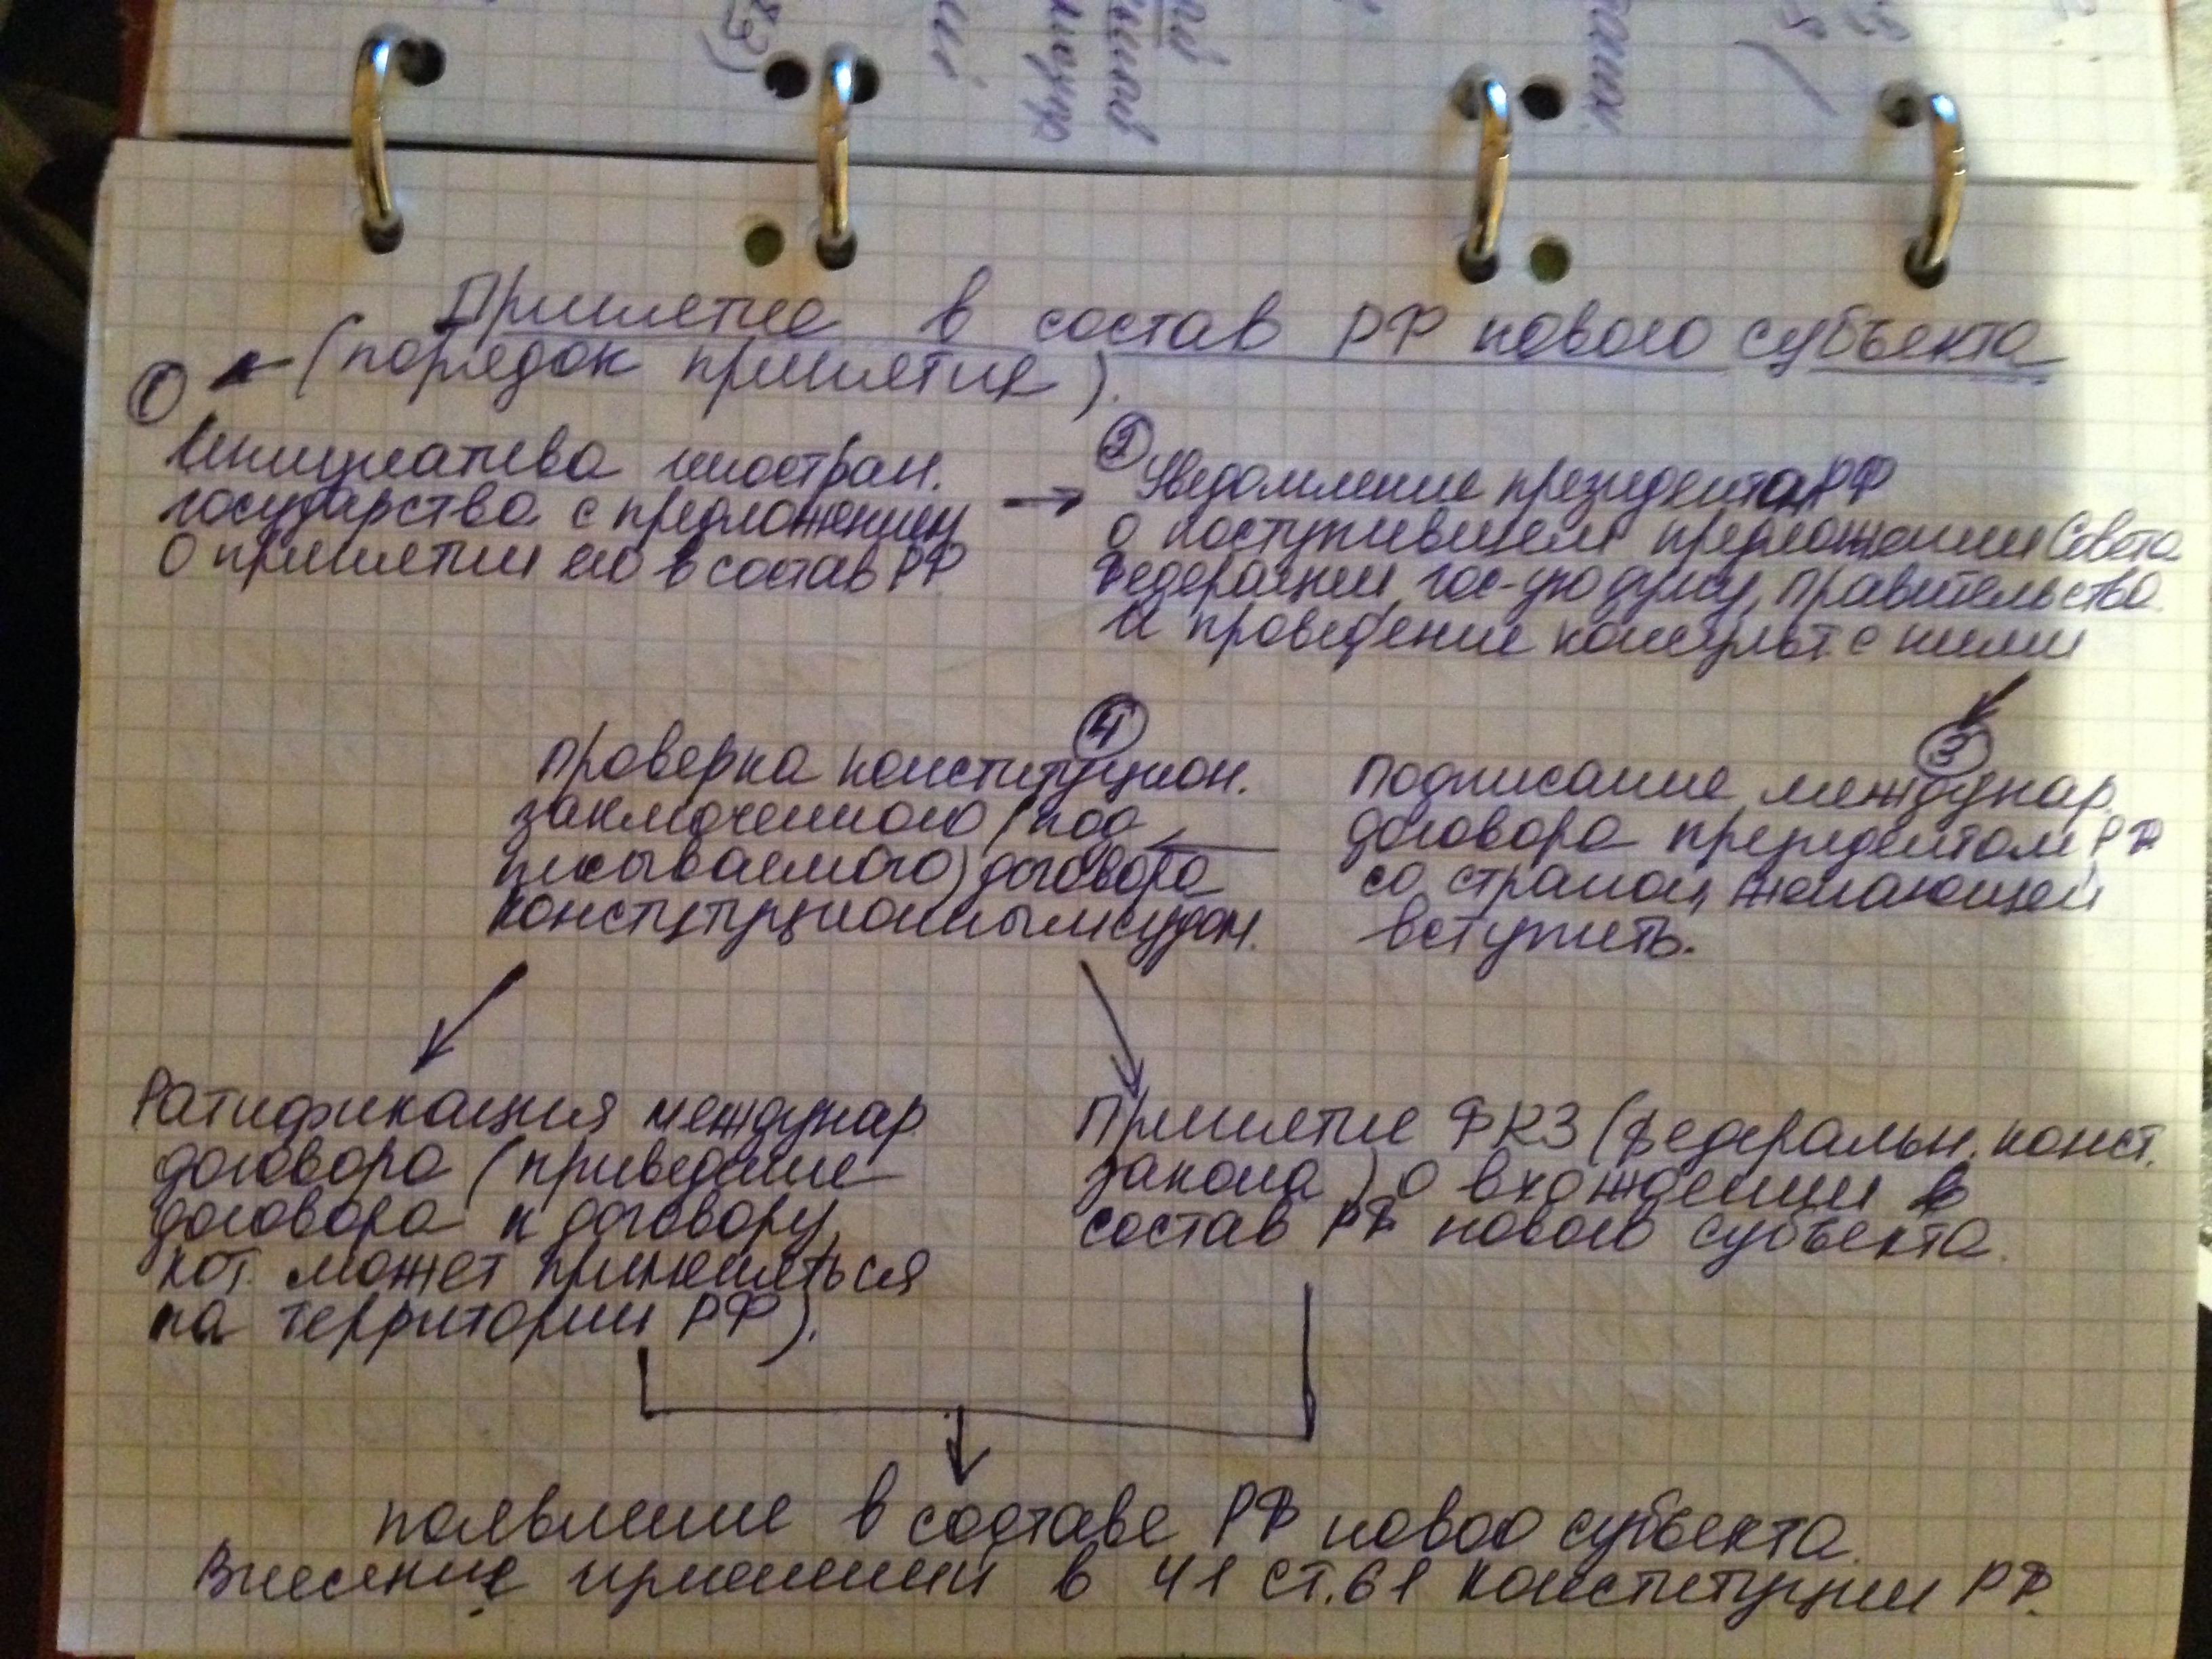 Принятие в состав РФ нового субъекта
(порядок принятия).
1
Инициатива иностран.
государства с предложением
о принятии его в состав РФ
2
Уведомление президента РФ
о поступившем предложении Совета
Федерации, гос-ую думу, правительство
и проведение консульт с ними
3
Подписание междунар.
договора президентом РФ
со страной, желающей
вступить.
4
Проверка конституцион.
заключенного (под
писываемого) договора
Конституционным судом.
Ратификация междунар
договора (приведение
договора к договору,
кот. может применяться
на территории РФ).
Принятие ФКЗ (федеральн. конст.
закона) о вхождении в
состав РФ нового субъекта.
появление в составе РФ новоо субъекта.
Внесение изменений в ч1 ст.61 конституции РФ.